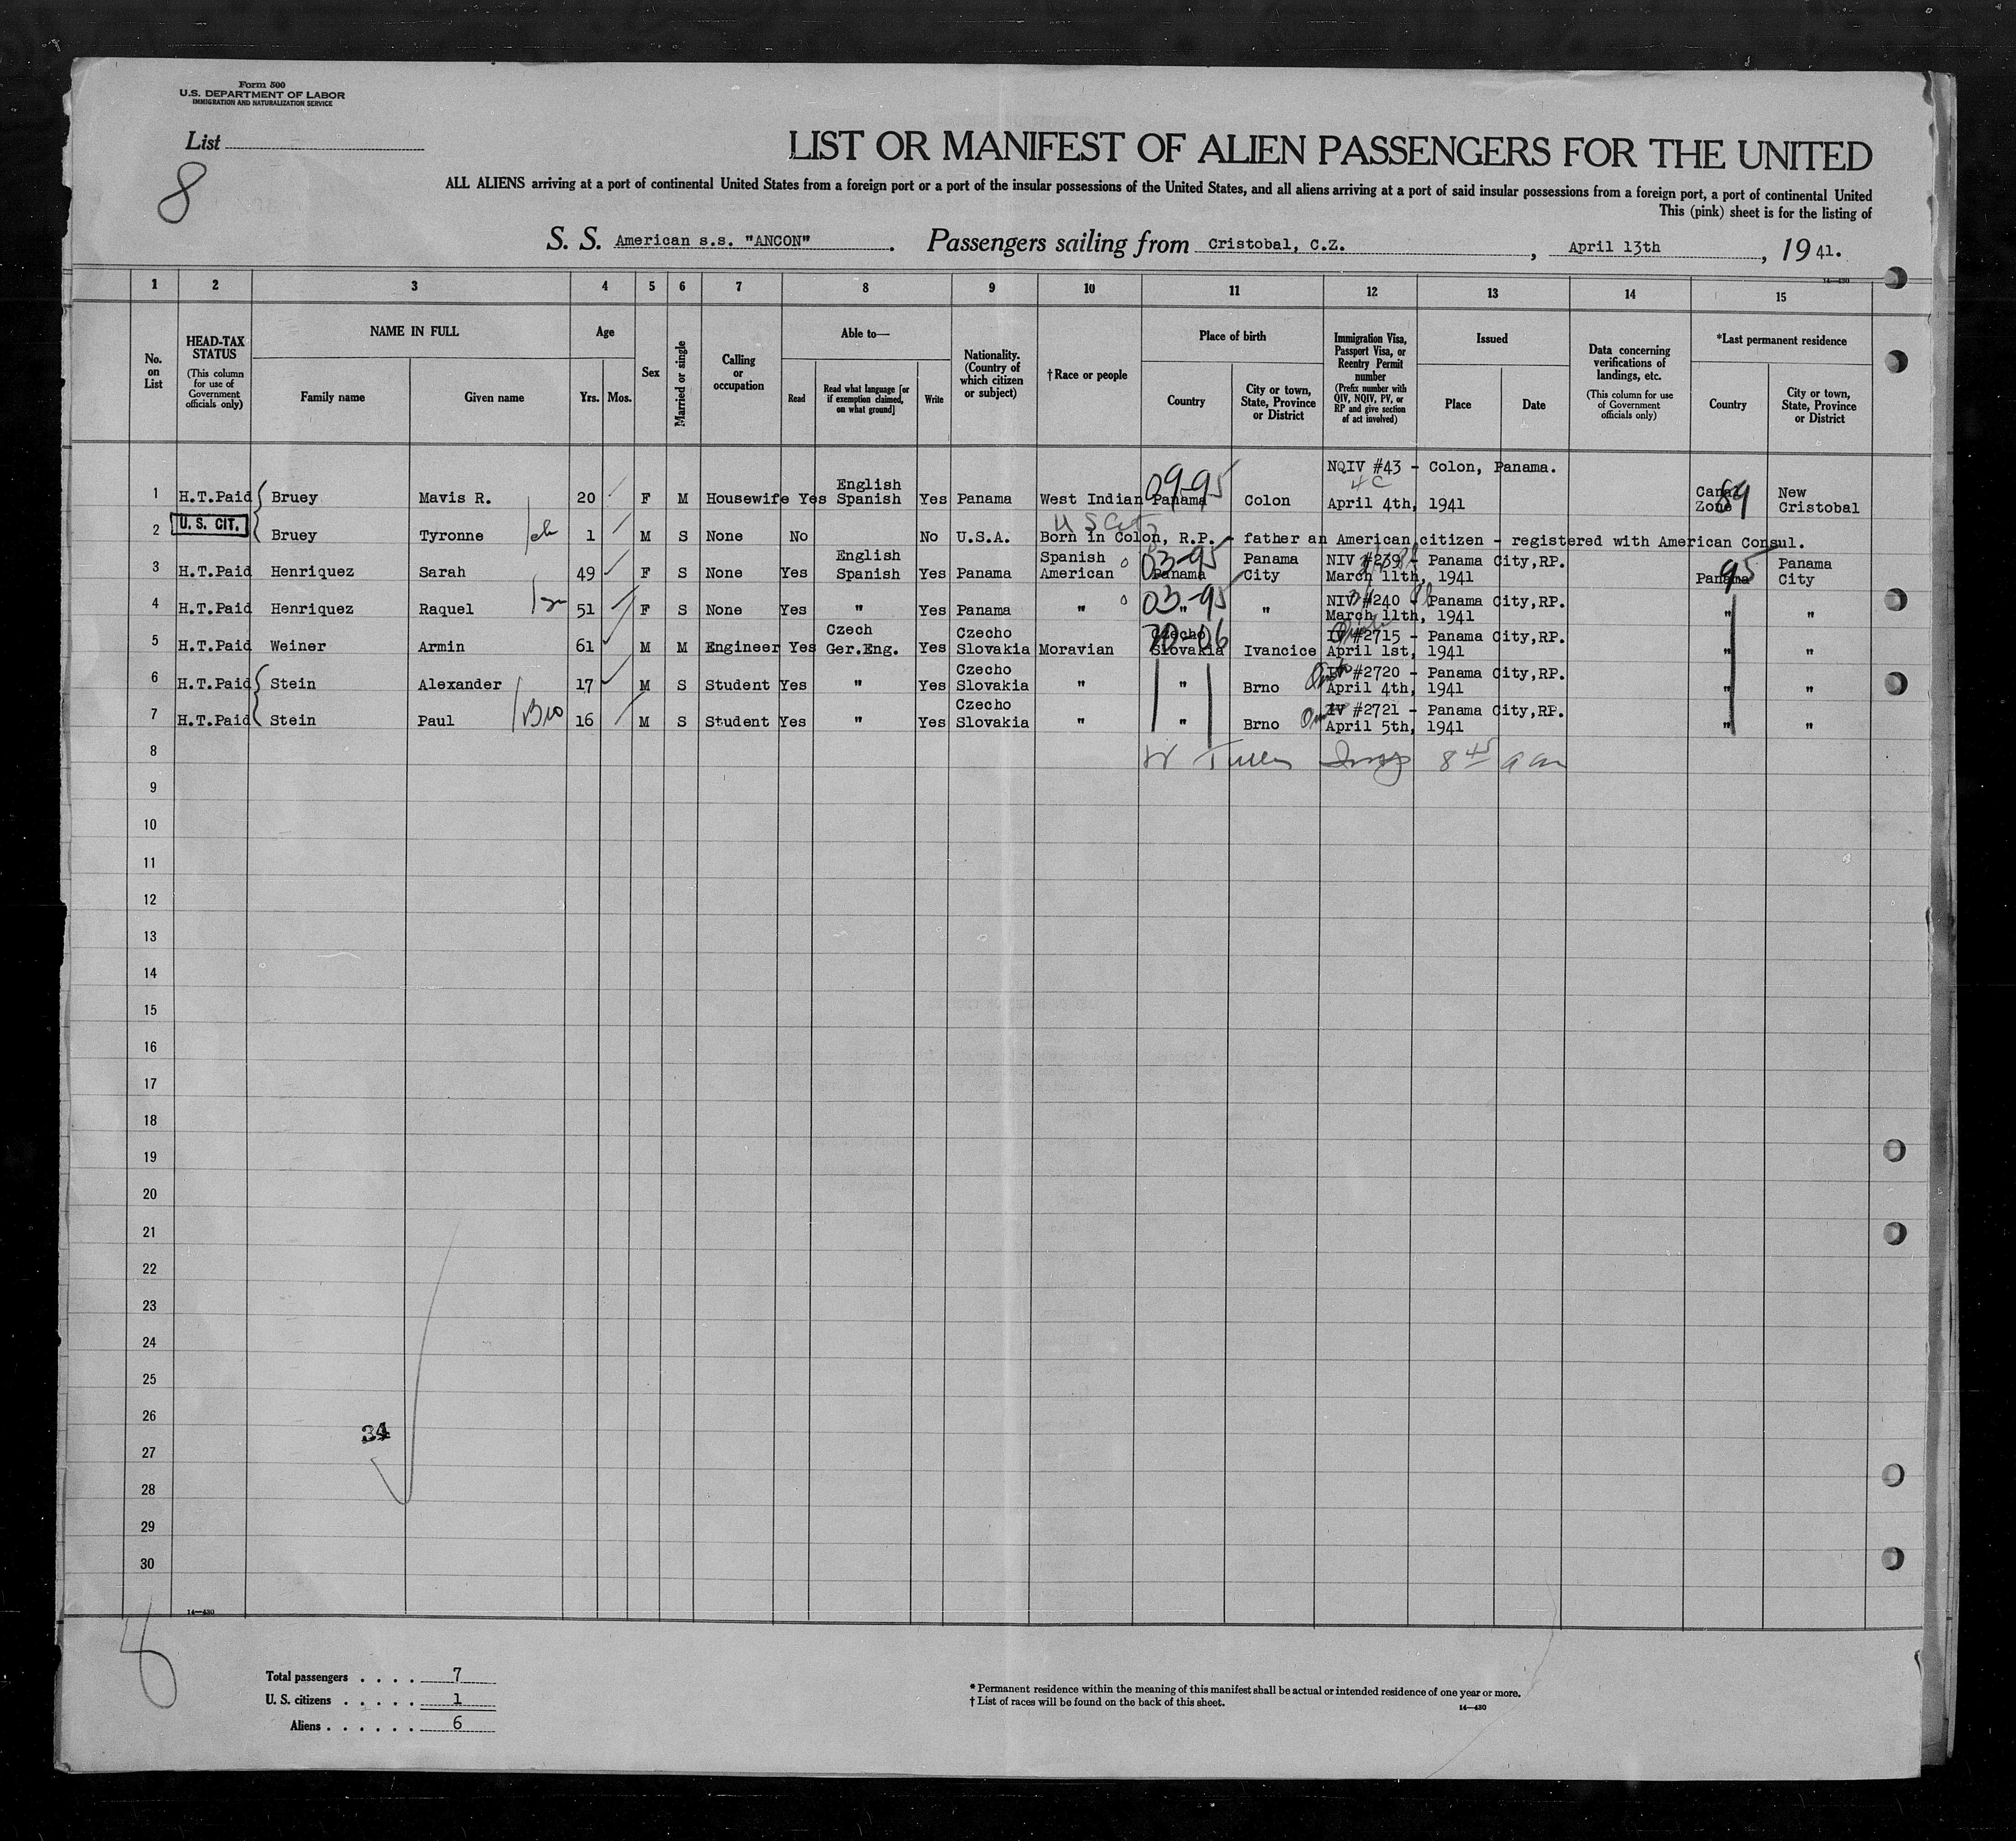 Form 500
U.S. DEPARTMENT OF LABOR
IMMIGRATION AND NATURALIZATION SERVICE
List
8
LIST OR MANIFEST OF ALIEN PASSENGERS FOR THE UNITED
ALL ALIENS arriving at a port of continental United States from a foreign port or a port of the insular possessions of the United States, and all aliens arriving at a port of said insular possessions from a foreign port, a port of continental United
This (pink) sheet is for the listing of
S. S. American s.s. "ANCON". Passengers sailing from Cristobal, C.Z., April 13th, 19 41.
14—430
1 2 3 4 5 6 7 8 9 10 11 12 13 14 15
No. on List
HEAD-TAX STATUS (This column for use of Government officials only)
NAME IN FULL
Family name Given name
Age
Yrs. Mos.
Sex
Married or single
Calling or occupation
Able to—
Read Read what language [or if exemption claimed, on what ground] Write
Nationality. (Country of which citizen or subject)
†Race or people
Place of birth
Country City or town, State, Province or District
Immigration Visa, Passport Visa, or Reentry Permit number (Prefix number with QIV, NQIV, PV, or RP and give section of act involved)
Issued
Place Date
Data concerning verifications of landings, etc. (This column for use of Government officials only)
*Last permanent residence
Country City or town, State, Province or District
NQIV #43 - Colon, Panama.
4c
1 H.T.Paid Bruey Mavis R. 20 F M Housewife Yes English Spanish Yes Panama West Indian Panama 09-95 Colon April 4th, 1941 Canal Zone 84 New Cristobal
U.S. CIT.
U S Cit
2 Bruey Tyronne 1 M S None No No U.S.A. Born in Colon, R.P. - father an American citizen - registered with American Consul.
3 H.T.Paid Henriquez Sarah 49 F S None Yes English Spanish Yes Panama Spanish American Panama 03-95 Panama City NIV #239 - Panama City,RP. March 11th, 1941 Panama 95 Panama City
4 H.T.Paid Henriquez Raquel 51 F S None Yes " Yes Panama " " 03-95 " NIV #240 - Panama City,RP. March 11th, 1941 " "
5 H.T.Paid Weiner Armin 61 M M Engineer Yes Czech Ger.Eng. Yes Czecho Slovakia Moravian Czecho Slovakia 70-06 Ivancice IV #2715 - Panama City,RP. April 1st, 1941 " "
6 H.T.Paid Stein Alexander 17 M S Student Yes " Yes Czecho Slovakia " " Brno IV #2720 - Panama City,RP. April 4th, 1941 " "
7 H.T.Paid Stein Paul 16 M S Student Yes " Yes Czecho Slovakia " " Brno IV #2721 - Panama City,RP. April 5th, 1941 " "
8 8 45 a m
9
10
11
12
13
14
15
16
17
18
19
20
21
22
23
24
25
26
34
27
28
29
30
14—430
Total passengers . . . . 7
U. S. citizens . . . . . 1
Aliens . . . . . . 6
* Permanent residence within the meaning of this manifest shall be actual or intended residence of one year or more.
† List of races will be found on the back of this sheet.
14—430